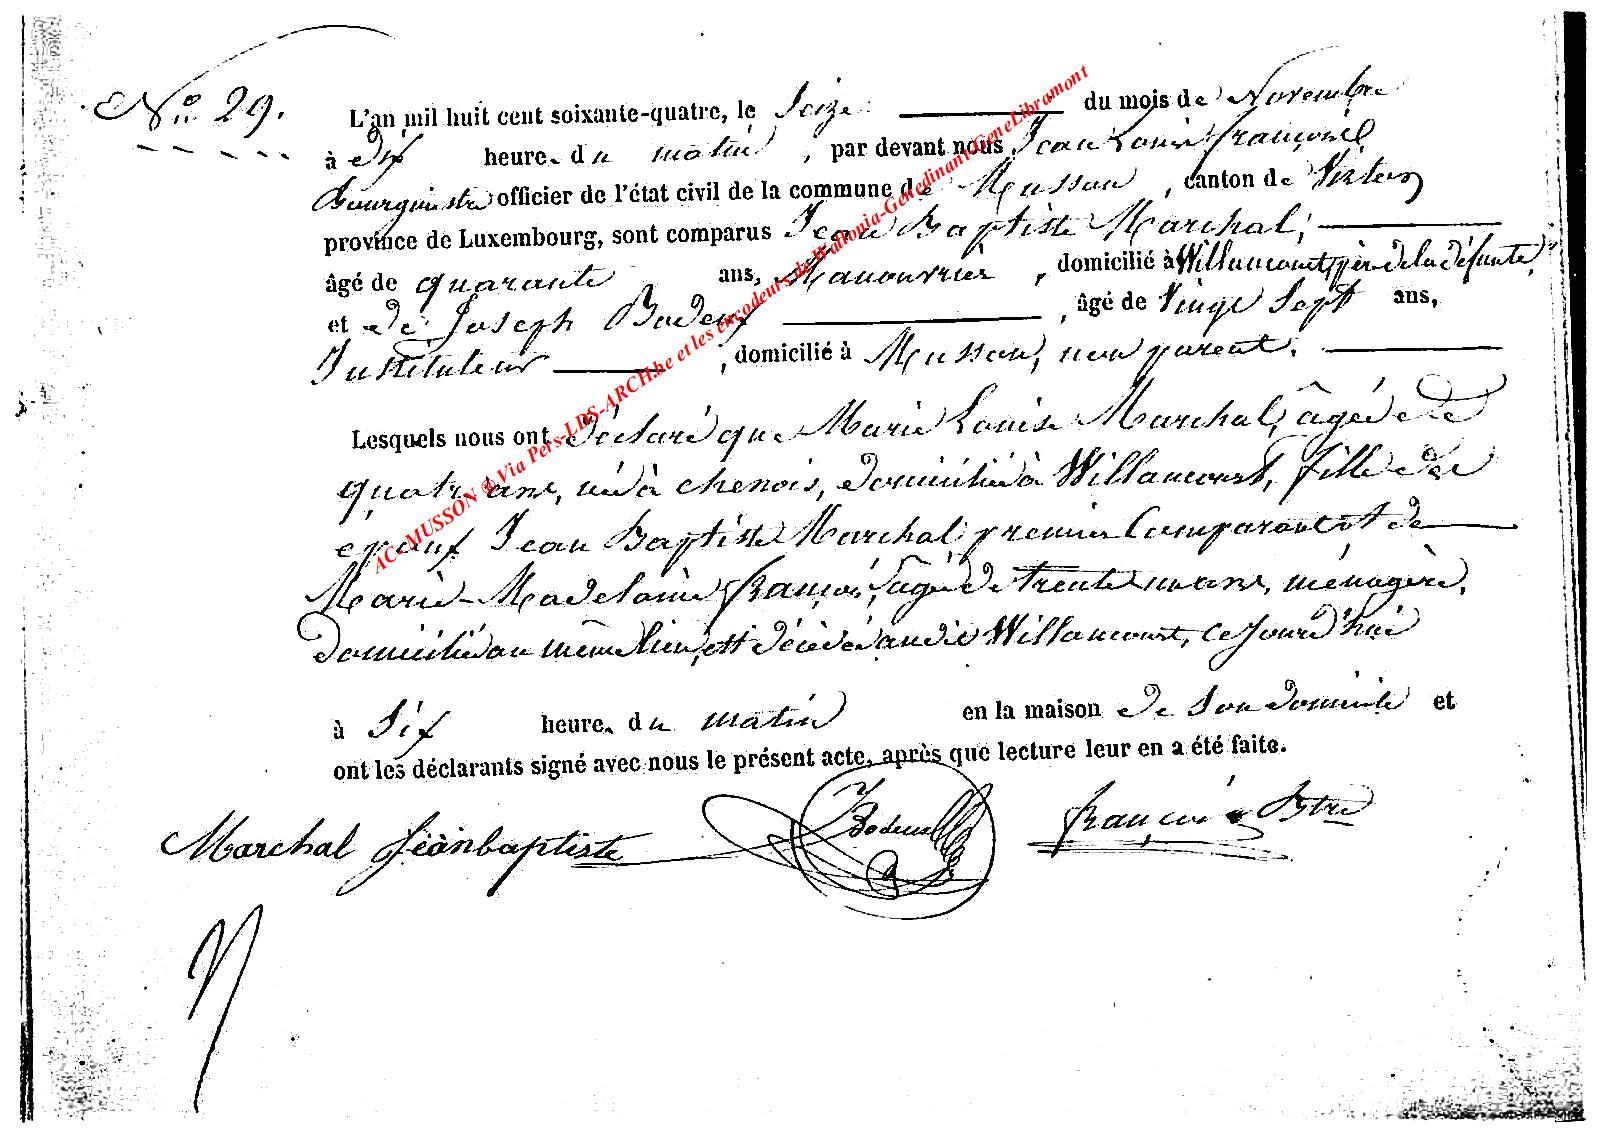 No. 29.
L'an mil huit cent soixante-quatre, le Seize du mois de Novembre
à dix heure. du matin, par devant nous Jean Louis François,
Bourgmestre officier de l'état civil de la commune de Musson, canton de Virton
province de Luxembourg, sont comparus Jean Baptiste Marchal,
âgé de quarante ans, Manouvrier, domicilié à Willancourt, père de la défunte,
et de Joseph Bodeux, âgé de Vingt Sept ans,
Instituteur, domicilié à Musson, non parent.
Lesquels nous ont déclaré que Marie Louise Marchal, âgée de
quatre ans, né à chenois, domicilié à Willancourt, fille des
époux Jean Baptiste Marchal premier Comparant et de
Marie-Madelaine François, âgé de trente ans, ménagère,
domicilié au même lieu, est décédé audit Willancourt, ce jourd'hui
à Six heure. du matin en la maison de Son domicile et
ont les déclarants signé avec nous le présent acte, après que lecture leur en a été faite.
Marchal jeanbaptiste J Bodeux François Bstre
AC-MUSSON @ Via Pers-LDS-ARCH.be et les encodeurs de Wallonia-Genedinant-GeneLibramont